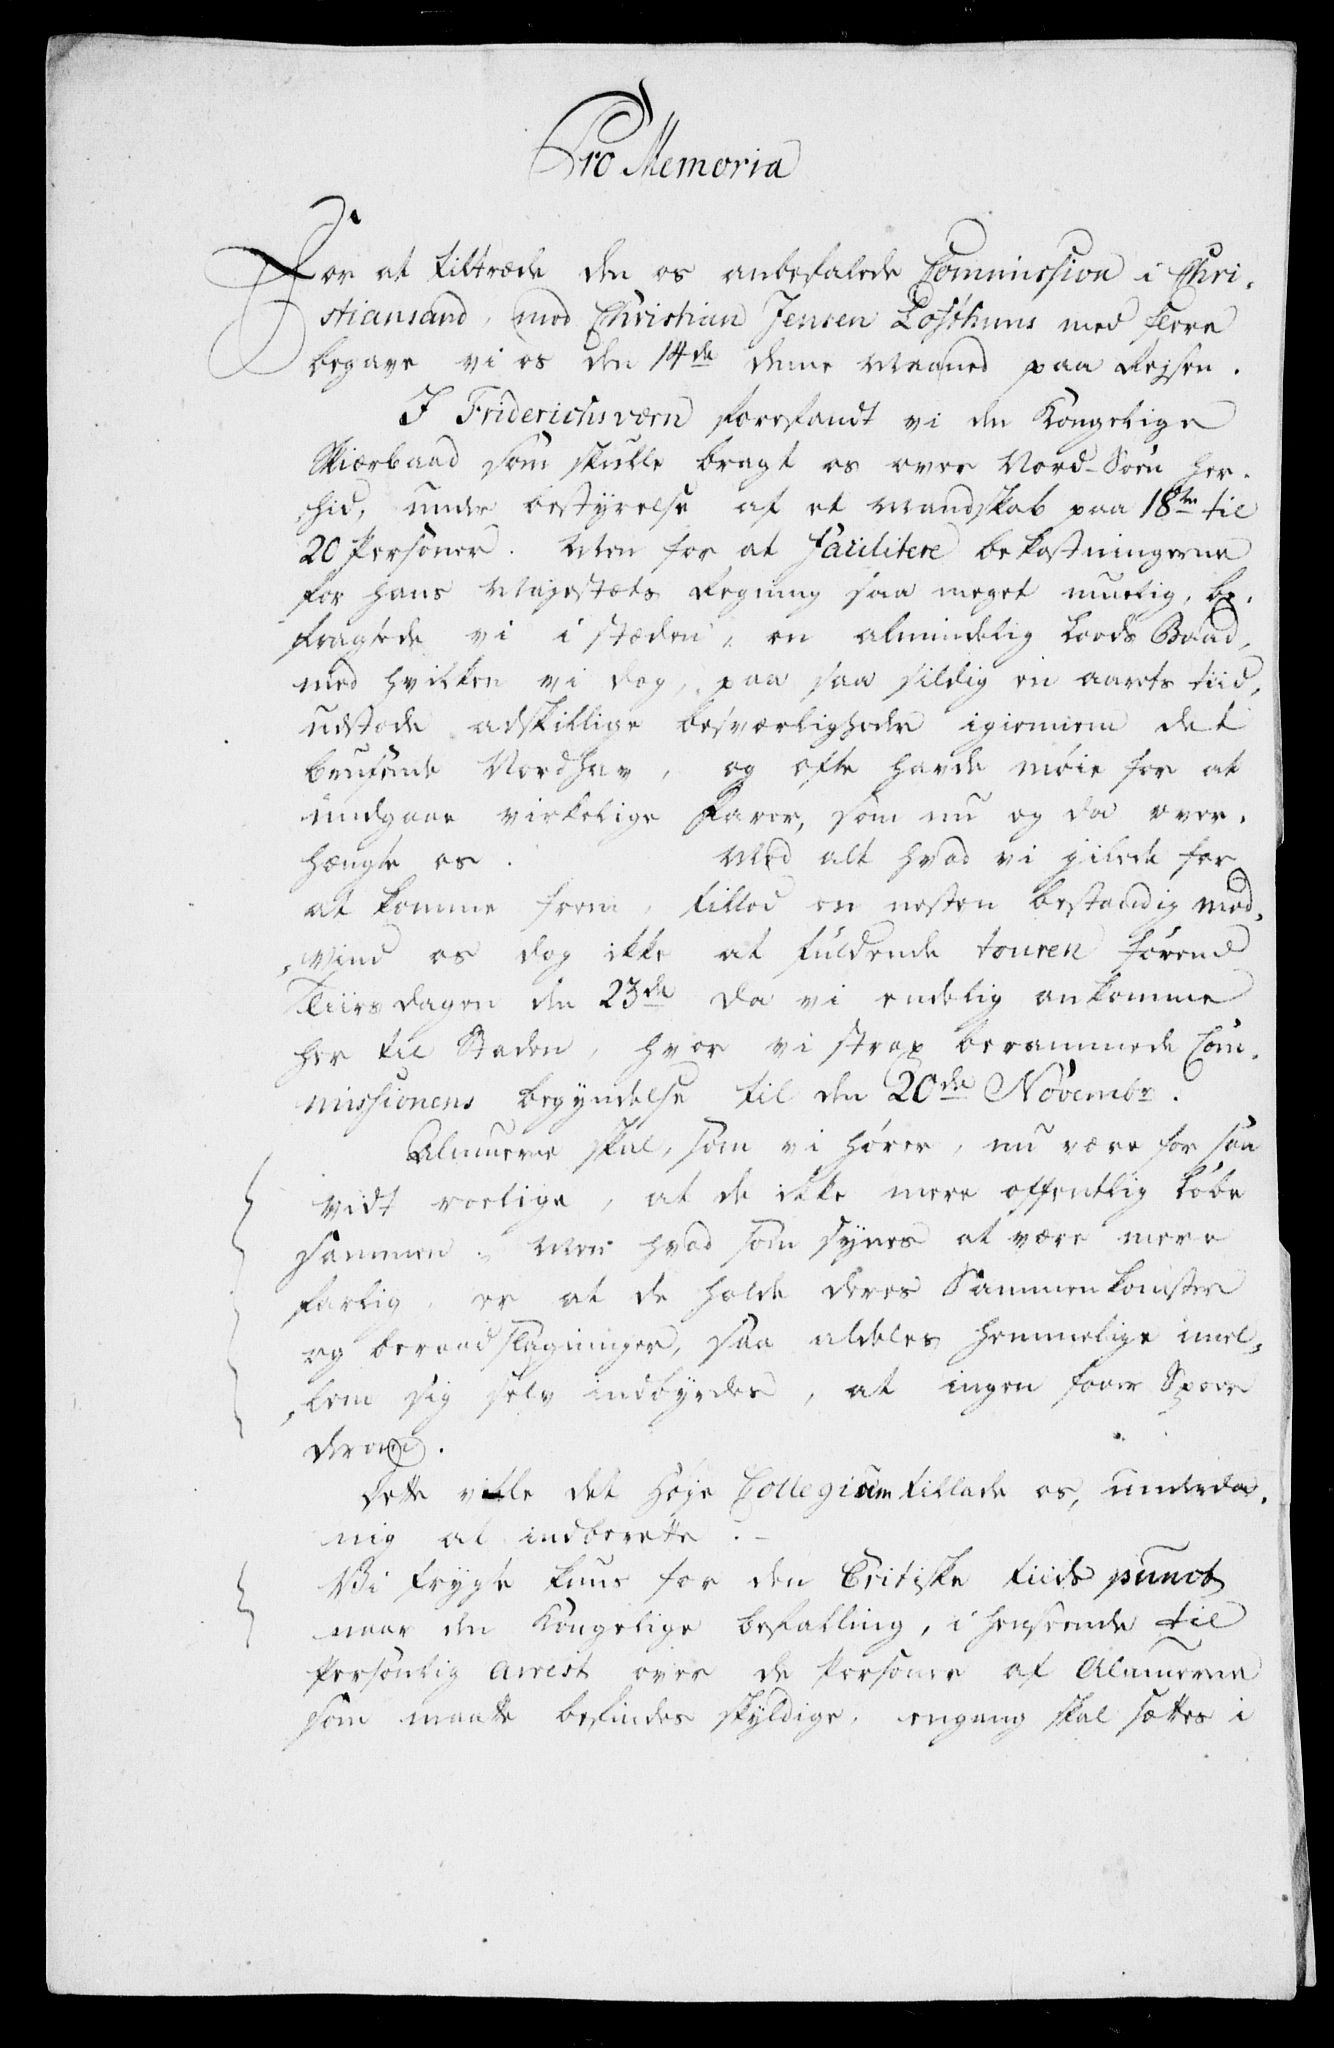 Pro Memoria
For at tiltræde den os anbefalede Commission i Chri-
stiansand, mod Christian Jensen Lofthuus med flere
begave vi os den 14de denne Maaned paa Rejsen.
I Friderichsværn forefandt vi den Kongelige
Skiærbaad som skulle bragt os over Nord-Søen her-
hid, under bestyrelse af et Mandskab paa 18ten til
20 Personer. Men for at facilitere bekostningerne
for Hans Majestæts Regning saa meget muelig, be-
fragtede vi i stæden, en almindelig Lods Baad,
med hvilken vi dog, paa saa sildig en aarets tiid,
udstode adskillige besværligheder igiennem det
brusende Nordhav, og ofte havde møie for at
undgaae virkelige Farer, som nu og da over-
hængte os. Med alt hvad vi jilede for
at komme frem, tillod en nesten bestandig mod-
vind os dog ikke at fuldende touren førend
Tiirsdagen den 23de da vi endelig ankomme
her til Staden, hvor vi strax berammede Com-
missionens begyndelse til den 20de Novembr.
Almuerne skal, som vi hører, nu være for saa
vidt roelige, at de ikke mere offentlig løbe
sammen. Men hvad som synes at være mere
farlig, er at de holde deres Sammenkomster
og beraadslagninger, saa aldeles hemmelige imel-
lem sig selv indbyrdes, at ingen faaer Spoer
derom.
Dette ville det høje Collegium tillade os, underda-
nig at indberette.
Vi frygte kuns for den Critiske tiids punct
naar den Kongelige befalling, i henseende til
Personlig Arrest over de Personer af Almuerne
som maatte befindes skyldige, engang skal sættes i